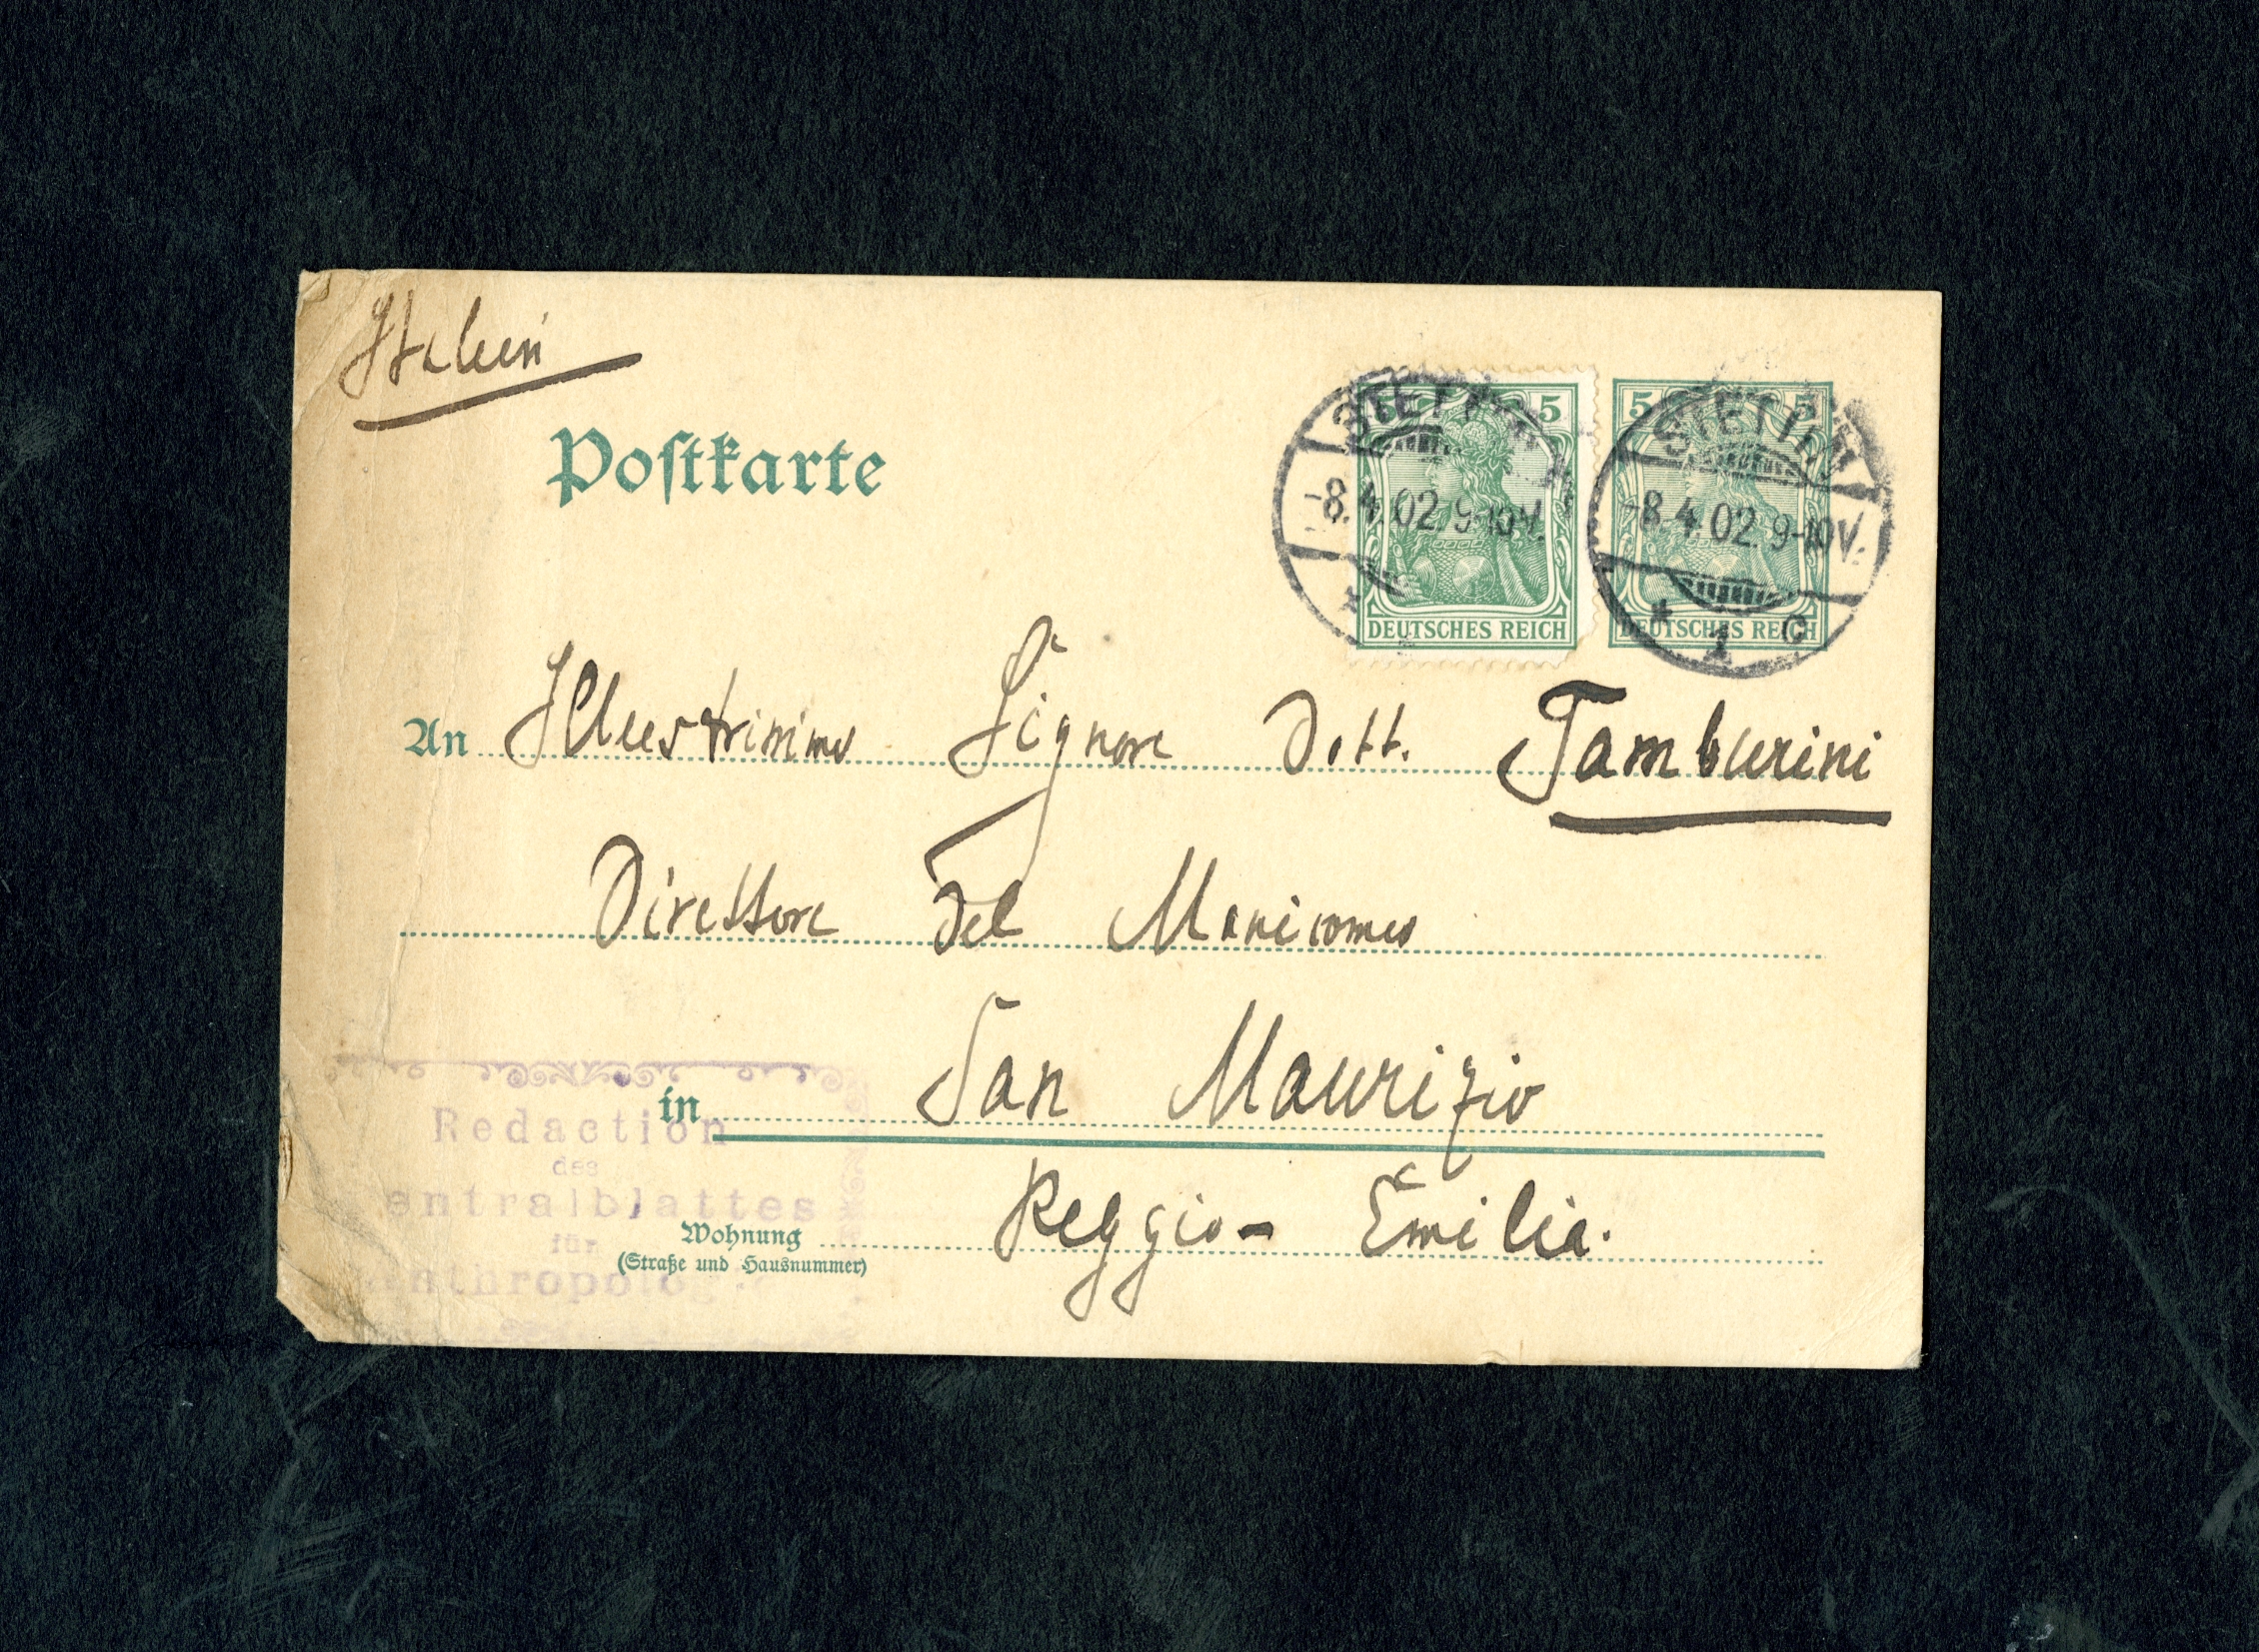 Italien
Postkarte
5 5
STETTIN
-8.4.02.9-10V.
DEUTSCHES REICH
5 5
STETTIN
-8.4.02.9-10V.
* 1 C
DEUTSCHES REICH
An Illustrissimo Signore Dott. Tamburini
Direttore del Manicomio
in San Maurizio
Wohnung Reggio-Emilia.
(Straße und Hausnummer)
Redaction
des
entralblattes
für
nthropolog